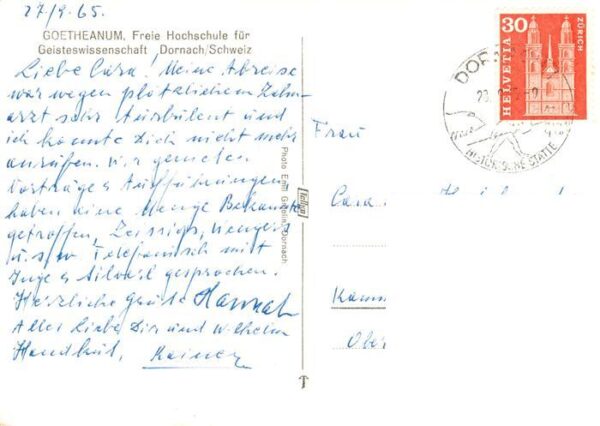 27/9.65.
GOETHEANUM, Freie Hochschule für
Geisteswissenschaft Dornach/Schweiz
Liebe Cara! Meine Abreise
war wegen plötzlichem Zahn
arzt sehr turbulent und
ich konnte Dich nicht mehr
anrufen. Wir genießen
Vorträge & Aufführungen
haben eine Menge Bekannte
getroffen,
u.s.w Telefonisch mit
Inge gesprochen.
Herzliche Grüße Hannah
Alles Liebe Dir und Wilhelm
Rainer
Photo Emil Dornach
30
HELVETIA
ZÜRICH
DOR
Frau
Cara
Kamm
Ober